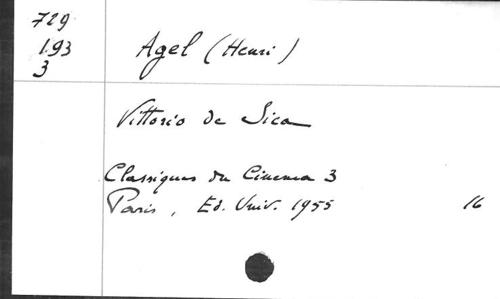 729
193
3
Agel (Henri)
Vittorio de Sica
Classiques du Cinema 3
Paris, Ed. Univ. 1955 16